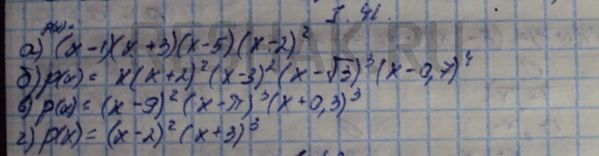 I. 41.
p(x) =
а) (x-1)(x+3)(x-5)(x-2)²
б) p(x) = x(x+2)²(x-3)²(x-√3)³(x-0,7)⁴
в) p(x) = (x-9)²(x-π)³(x+0,3)³
г) p(x) = (x-2)²(x+3)³